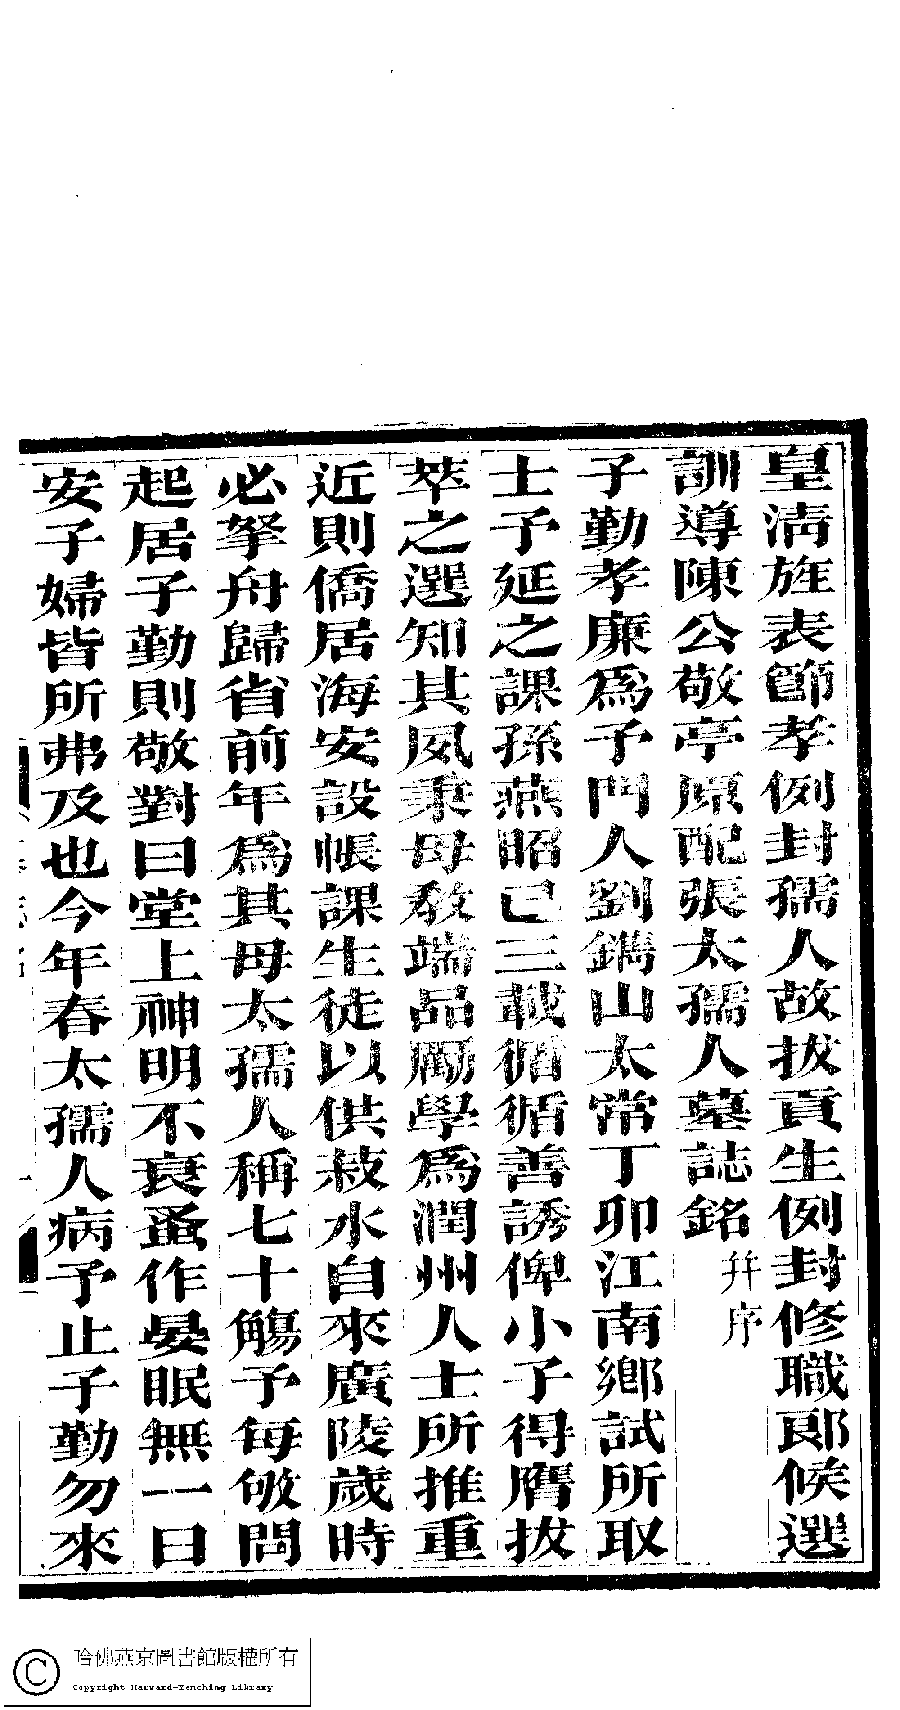 皇清旌表節孝例封孺人故拔貢生例封修職郎候選
訓導陳公敬亭原配張太孺人墓誌銘并序
子勤孝廉為予門人劉鐫山太常丁卯江南鄉試所取
士予延之課孫燕昭已三載循循善誘俾小子得膺拔
萃之選知其夙秉母教端品勵學為潤州人士所推重
近則僑居海安設帳課生徒以供菽水自來廣陵歲時
必拏舟歸省前年為其母太孺人稱七十觴予每敬問
起居子勤則敬對曰堂上神明不衰蚤作晏眠無一日
安子婦皆所弗及也今年春太孺人病予止子勤勿來
哈佛燕京圖書館版權所有
Copyright Harvard-Yenching Library